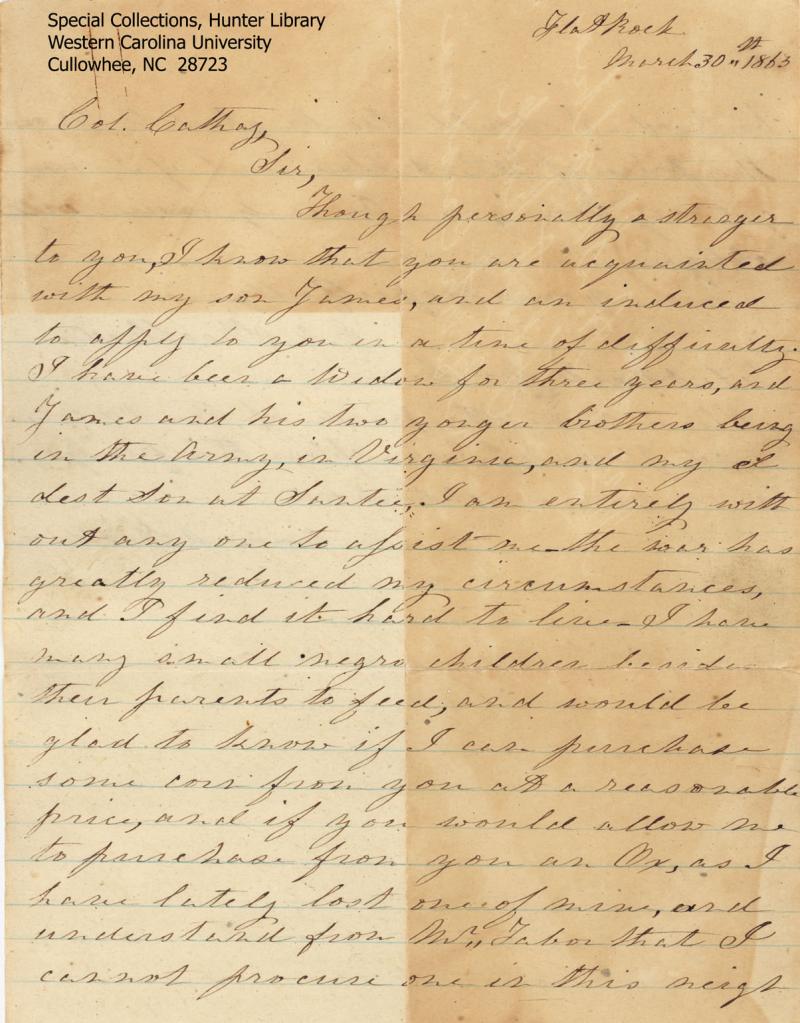 Special Collections, Hunter Library
Western Carolina University
Cullowhee, NC 28723
Flat Rock
March 30th 1863
Col. Cathey,
Sir,
Though personally a stranger
to you, I know that you are acquainted
with my son James, and am induced
to apply to you in a time of difficulty.
I have been a Widow for three years, and
James and his two yonger brothers being
in the Army, in Virginia, and my el
dest Son at Santee, I am entirely with
out any one to assist me_ the war has
greatly reduced my circumstances,
and I find it hard to live_ I have
many small negro children beside
their parents to feed, and would be
glad to know if I can purchase
some corn from you at a reasonable
price, and if you would allow me
to purchase from you an Ox, as I
have lately lost one of mine, and
understand from Mr. Tabor that I
cannot procure one in this neigh